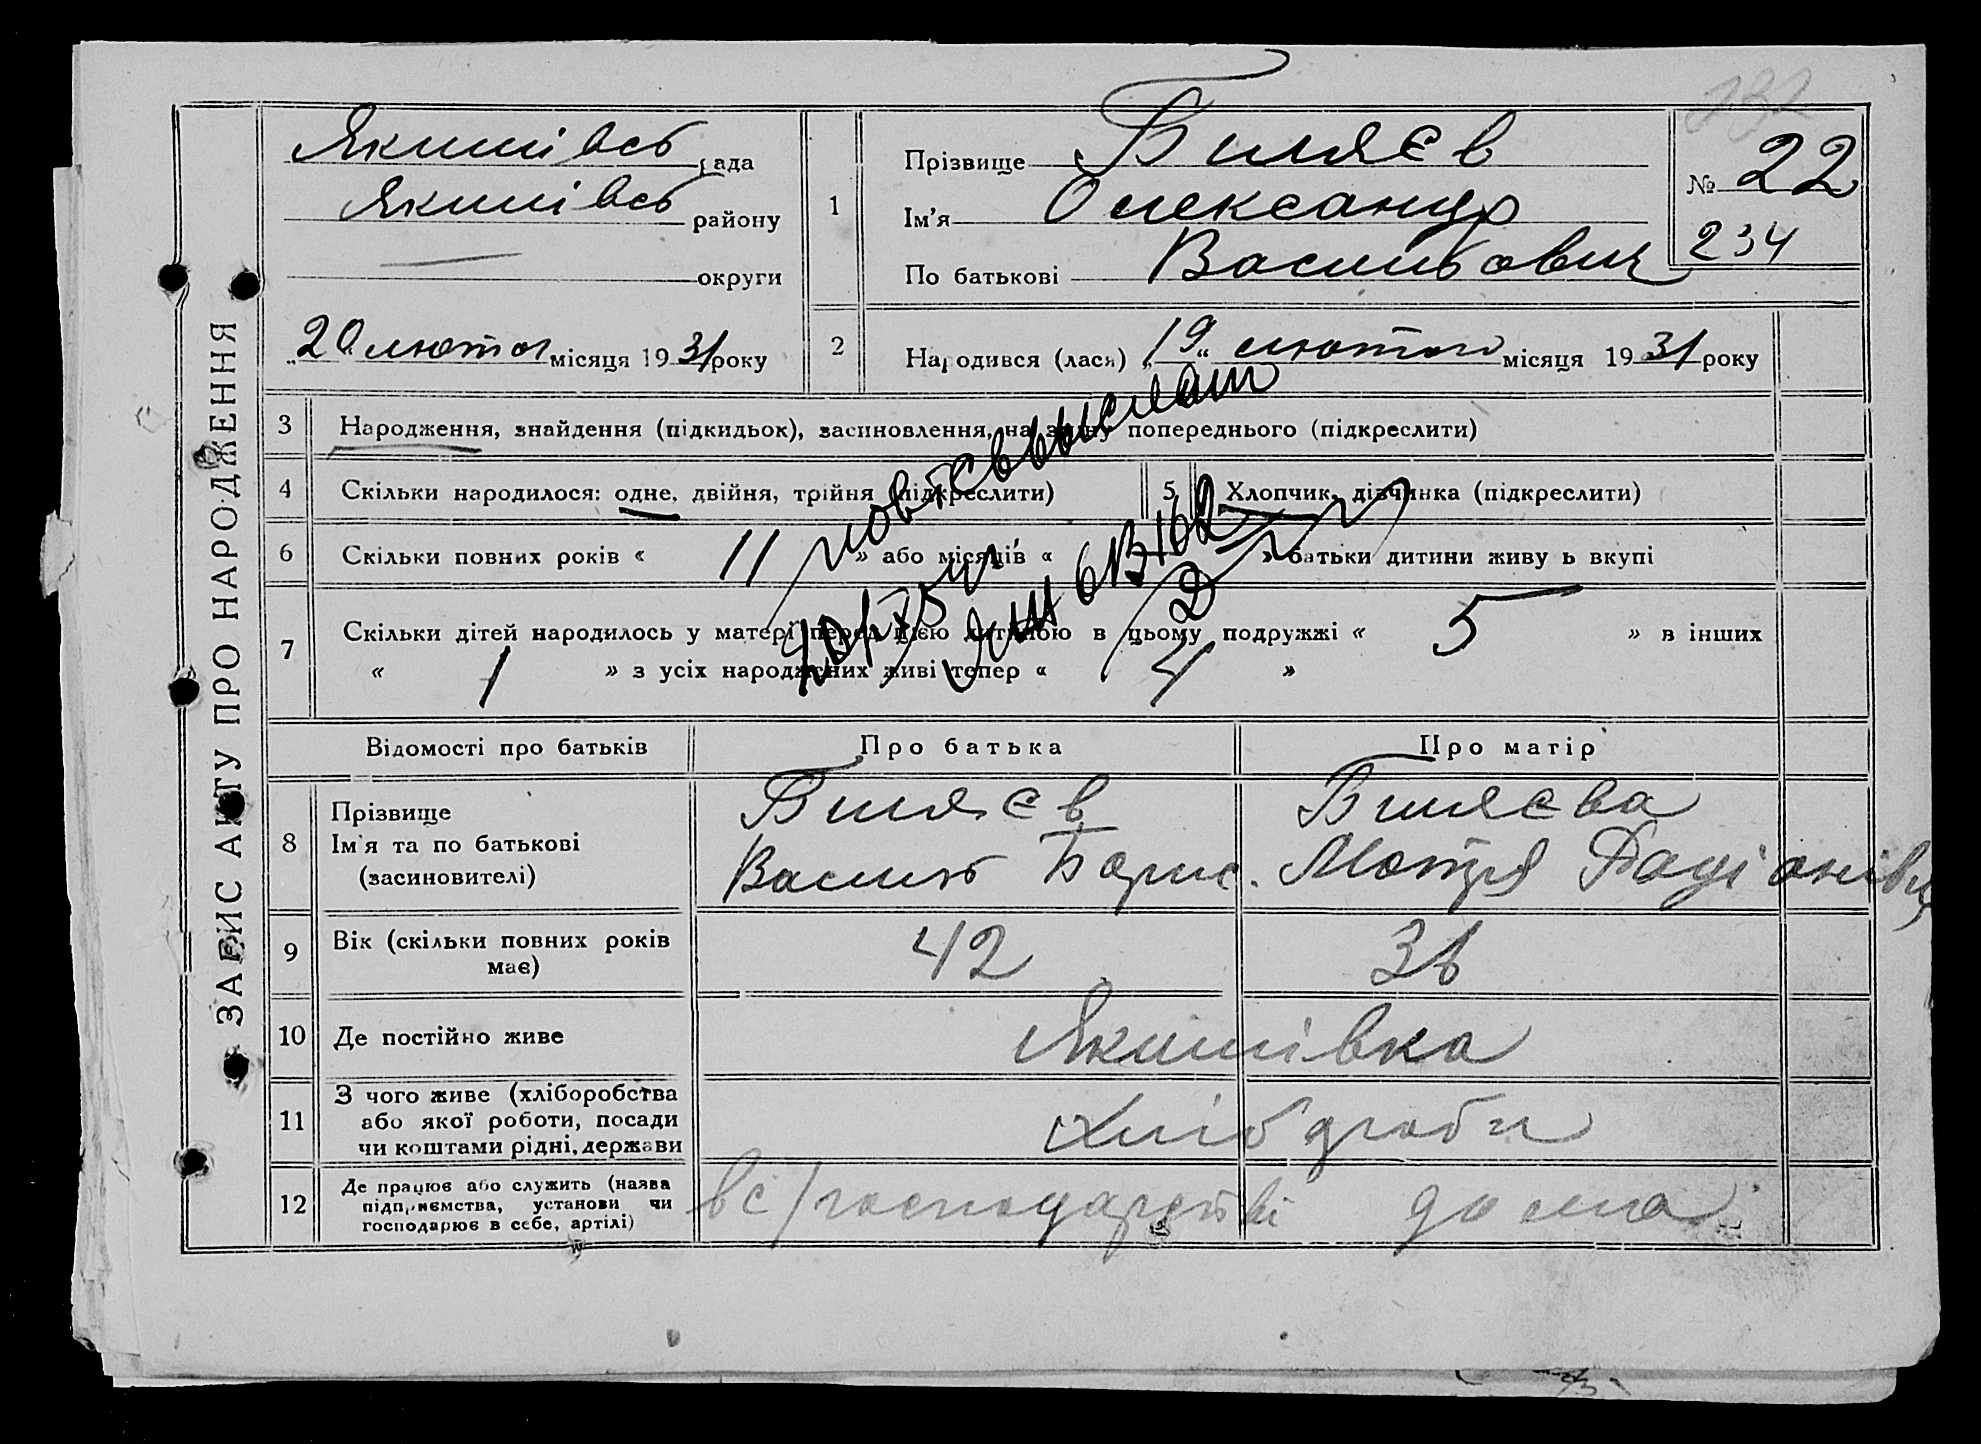 ЗАПИС АКТУ ПРО НАРОДЖЕННЯ
Якимівсь рада
Якимівсь району
округи
„20“ лютого місяця 1931 року
1
Прізвище Біляєв
Ім'я Олександр
По батькові Васильович
232
№ 22
234
2
Народився (лася) „19“ лютого місяця 1931 року
3
Народження, знайдення (підкидьок), засиновлення, на зміну попереднього (підкреслити)
4
Скільки народилося: одне, двійня, трійня (підкреслити)
5
Хлопчик, дівчинка (підкреслити)
6
Скільки повних років « 11 » або місяців « » батьки дитини живуть вкупі
7
Скільки дітей народилось у матері перед цією дитиною в цьому подружжі « 5 » в інших
« 1 » з усіх народжених живі тепер « 4 »
Відомості про батьків
Про батька
Про матір
8
Прізвище
Ім'я та по батькові
(засиновителі)
Біляєв
Василь Борис.
Біляєва
Мотря Радіонівна
9
Вік (скільки повних років
має)
42
36
10
Де постійно живе
Якимівка
11
З чого живе (хліборобства
або якої роботи, посади
чи коштами рідні, держави
Хлібороби
12
Де працює або служить (назва
підприємства, установи чи
господарює в себе, артілі)
в с/господарстві
дома